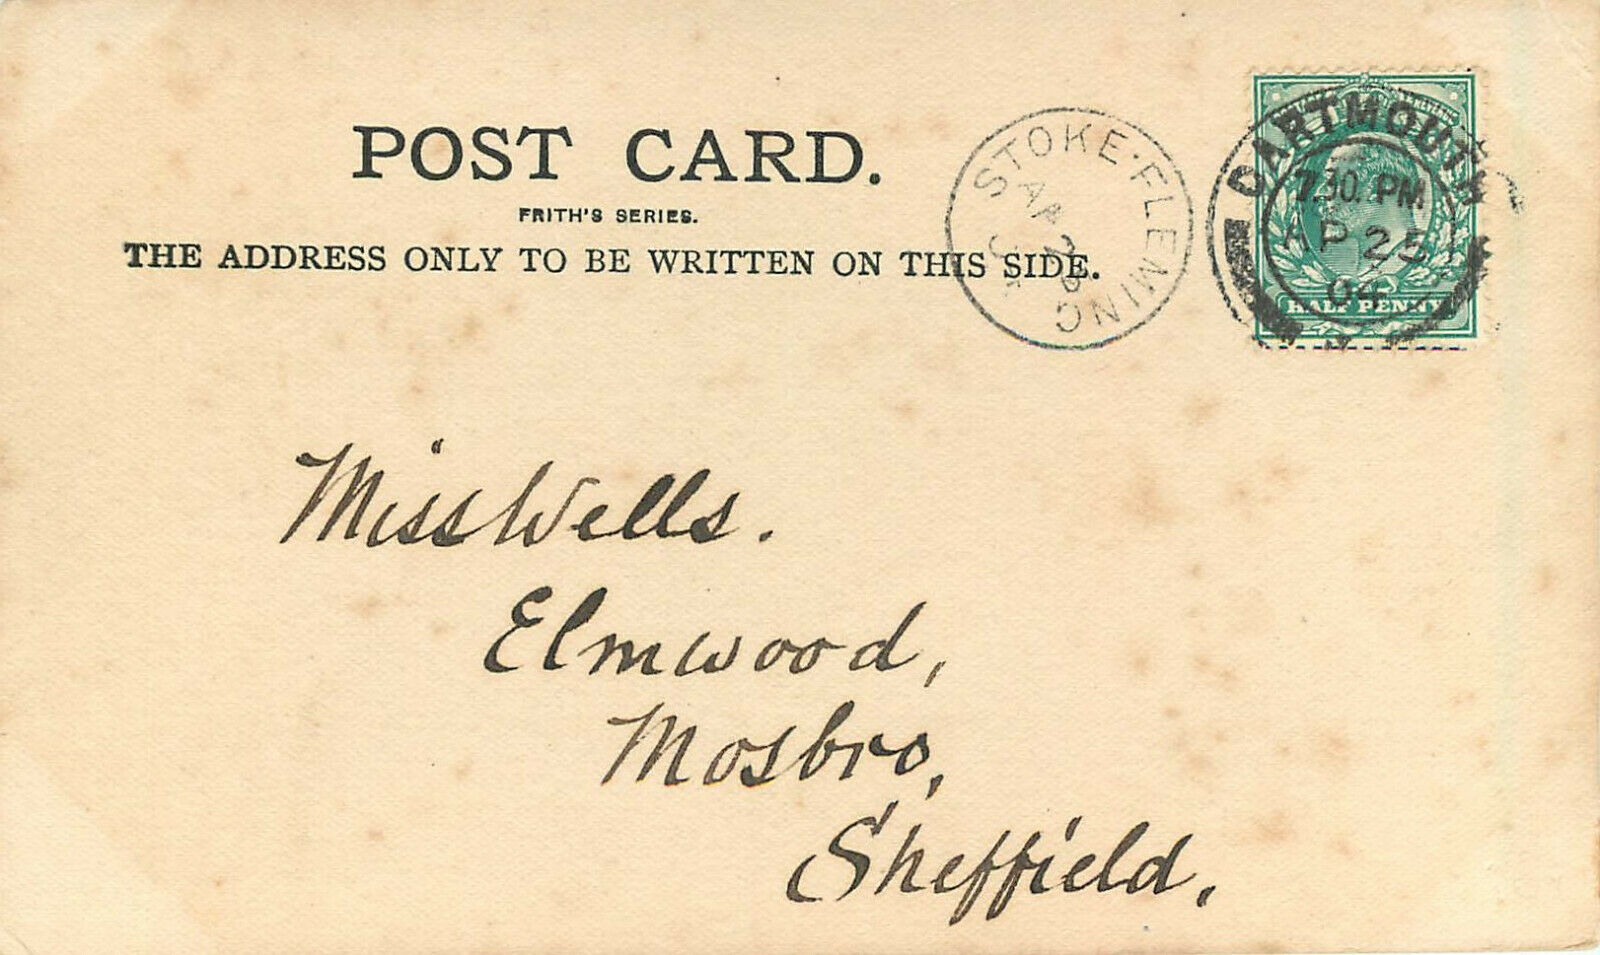 POST CARD.
FRITH'S SERIES.
THE ADDRESS ONLY TO BE WRITTEN ON THIS SIDE.
STOKE·FLEMING
AP 25
DARTMOUTH
7.30. PM
AP 25
04
HALF PENNY
Miss Wells.
Elmwood,
Mosbro,
Sheffield.